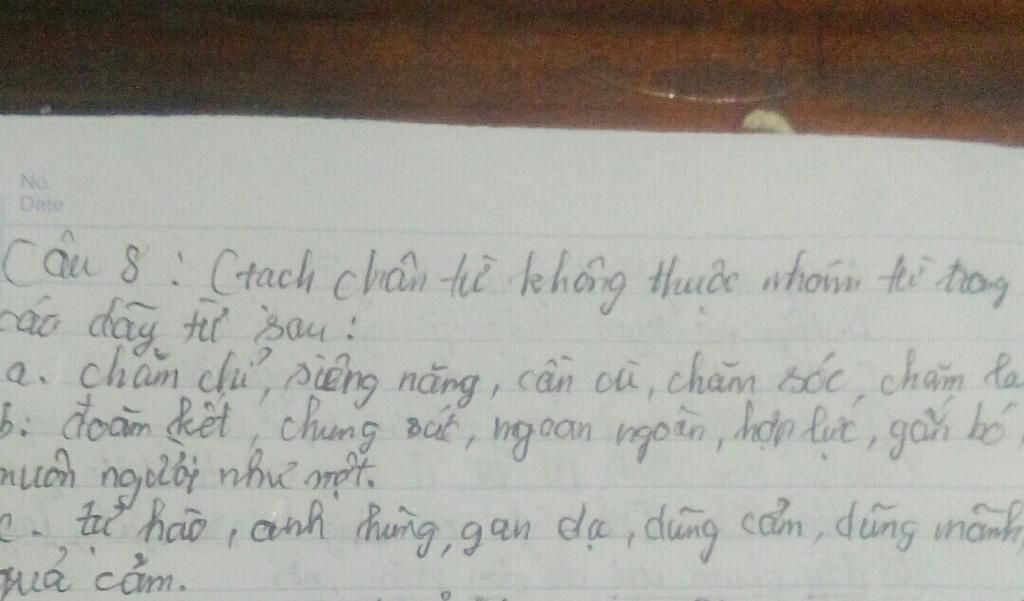 No.
Date
Câu 8: Gạch chân từ không thuộc nhóm từ trong
các dãy từ sau:
a. chăm chỉ, siêng năng, cần cù, chăm sóc, chăm
b: đoàn kết, chung sức, ngoan ngoãn, hợp lực, gắn bó,
muôn người như một.
c. tự hào, anh hùng, gan dạ, dũng cảm, dũng mãnh,
quả cảm.